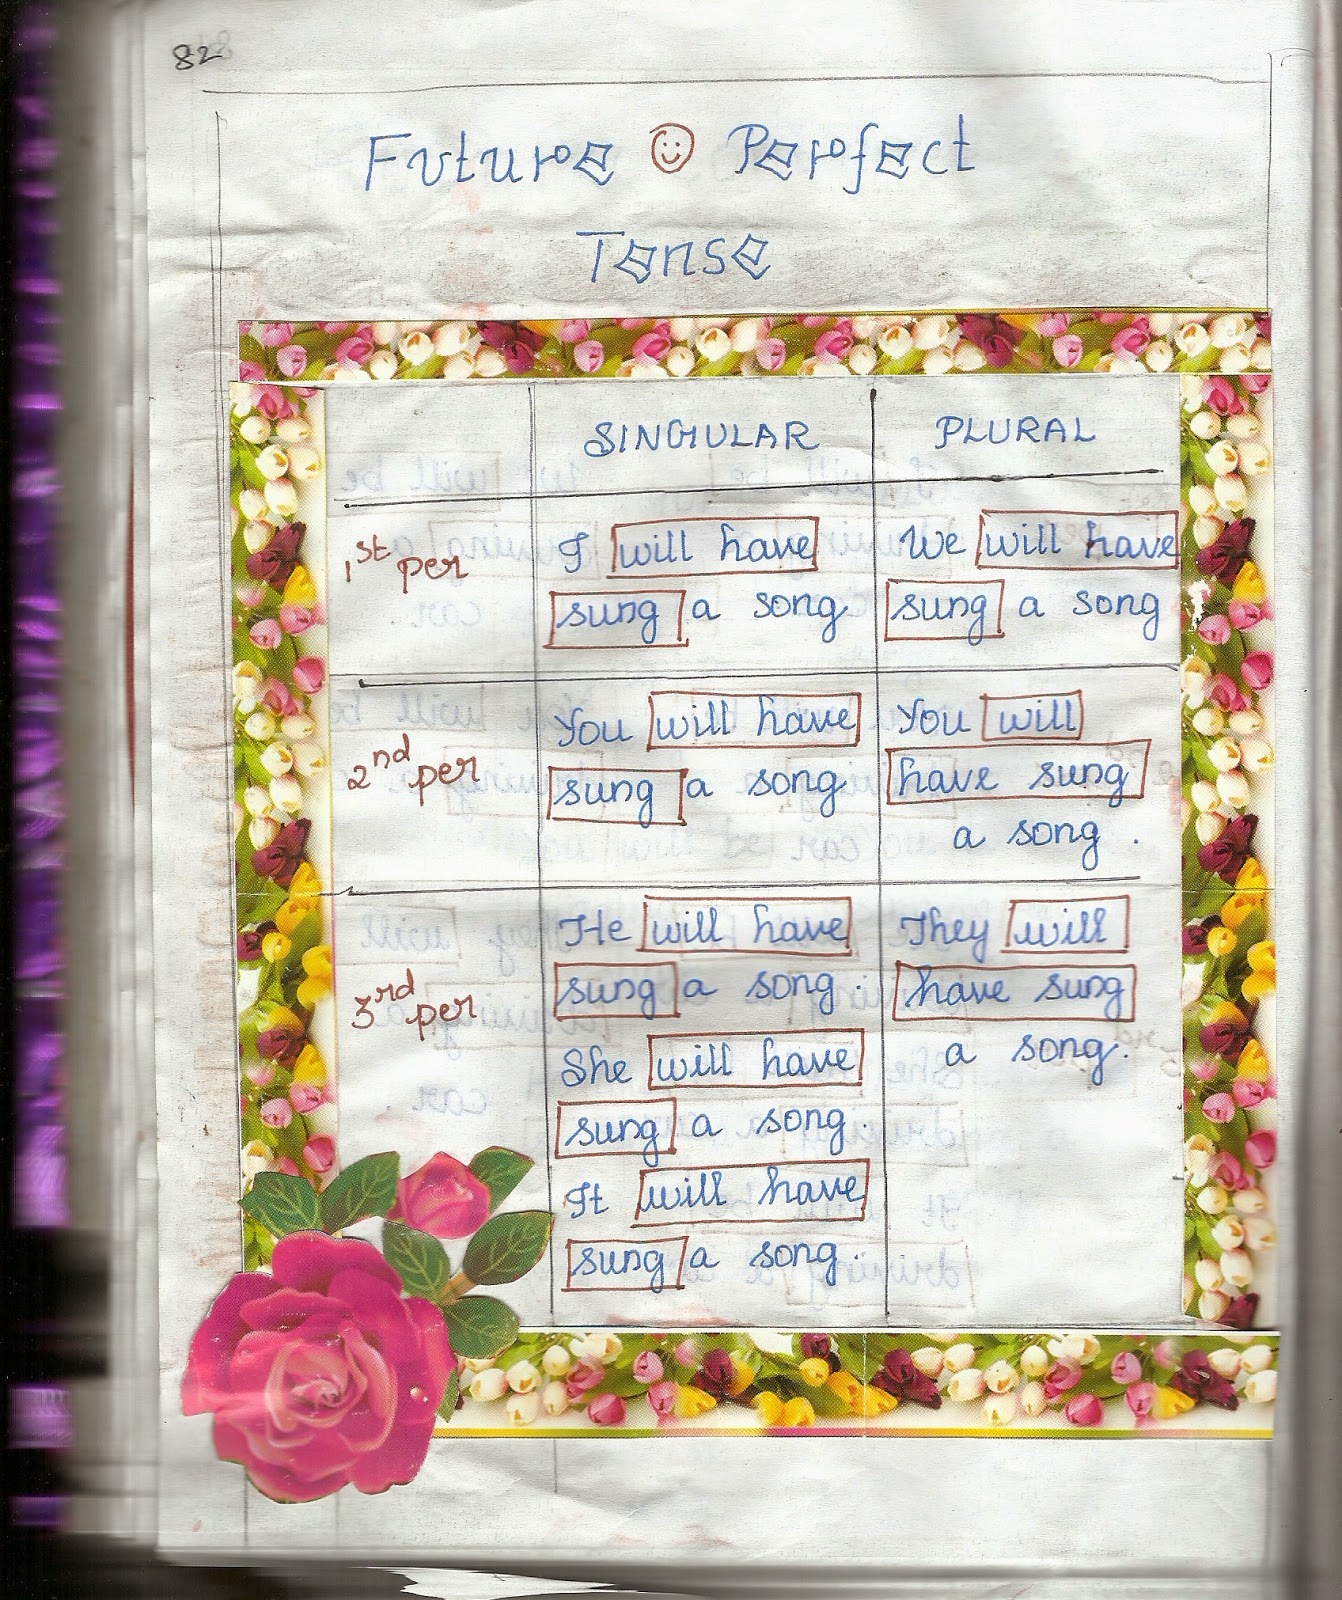 82
Future Perfect
Tense
SINGULAR PLURAL
1st per
I will have
sung a song
We will have
sung a song
2nd per
You will have
sung a song
You will
have sung
a song .
3rd per
He will have
sung a song .
She will have
sung a song .
It will have
sung a song .
They will
have sung
a song .